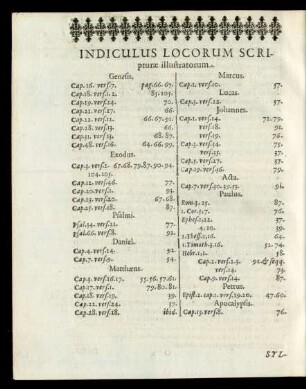 INDICULUS LOCORUM SCRI-
pturæ illustratorum.
Genesis.
Cap. 16. vers. 7. pag. 66. 67.
Cap. 18. vers. 1. 2. 85. 105.
Cap. 19. vers. 24. 70.
Cap. 21. vers. 17. 66.
Cap. 22. vers. 11. 66. 67. 91.
Cap. 28. vers. 13. 66.
Cap. 31. vers. 13. 68. 87.
Cap. 48. vers. 16. 64. 66. 99.
Exodus.
Cap. 3. vers. 2. 67. 68. 79. 87. 90. 94.
104. 105.
Cap. 12. vers. 46. 77.
Cap. 20. vers. 2. 94.
Cap. 23. vers. 20. 67. 68.
Cap. 25. vers. 18. 87.
Psalmi.
Psal. 34. vers. 21. 77.
Psal. 66. vers. 8. 92.
Daniel.
Cap. 4. vers. 14. 92.
Cap. 7. vers. 9. 54.
Matthæus.
Cap. 3. vers. 16. 17. 55. 56. 57. 61.
Cap. 17. vers. 1. 79. 80. 81.
Cap. 18. vers. 19. 39.
Cap. 22. vers. 24. 37.
Cap. 28. vers. 18. ibid.
Marcus.
Cap. 1. vers. 10. 57.
Lucas.
Cap. 3. vers. 22. 57.
Johannes.
Cap. 1. vers. 14. 72. 79.
vers. 18. 92.
vers. 29. 76.
Cap. 3. vers. 14. 75.
vers. 25. 37.
Cap. 5. vers. 27. 75.
Cap. 19. vers. 46. 79.
Acta.
Cap. 7. vers. 30. 35. 53. 91.
Paulus.
Rom. 3. 25. 87.
1. Cor. 5. 7. 76.
Ephes. 2. 12. 37.
4. 10. 39.
1. Thess. 2. 16. 94.
1. Timoth. 3. 16. 52. 74.
Hebr. 1. 1. 38.
Cap. 2. vers. 2. 3. 92. & seqq.
vers. 14. 73.
Cap. 9. vers. 14. 87.
Petrus.
Epist. 2. cap. 1. vers. 19. 20. 47. 60.
Apocalypsis.
Cap. 13. vers. 8. 76.
SYL-